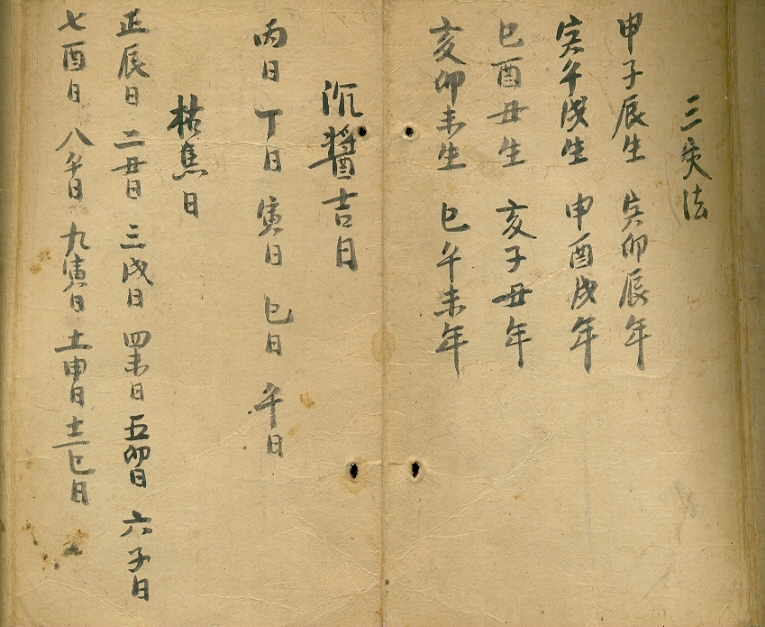 三災法
申子辰生 寅卯辰年
寅午戌生 申酉戌年
巳酉丑生 亥子丑年
亥卯未生 巳午未年
沉醬吉日
丙日 丁日 寅日 巳日 午日
枯焦日
正辰日 二丑日 三戌日 四未日 五卯日 六子日
七酉日 八午日 九寅日 十一申日 十二巳日